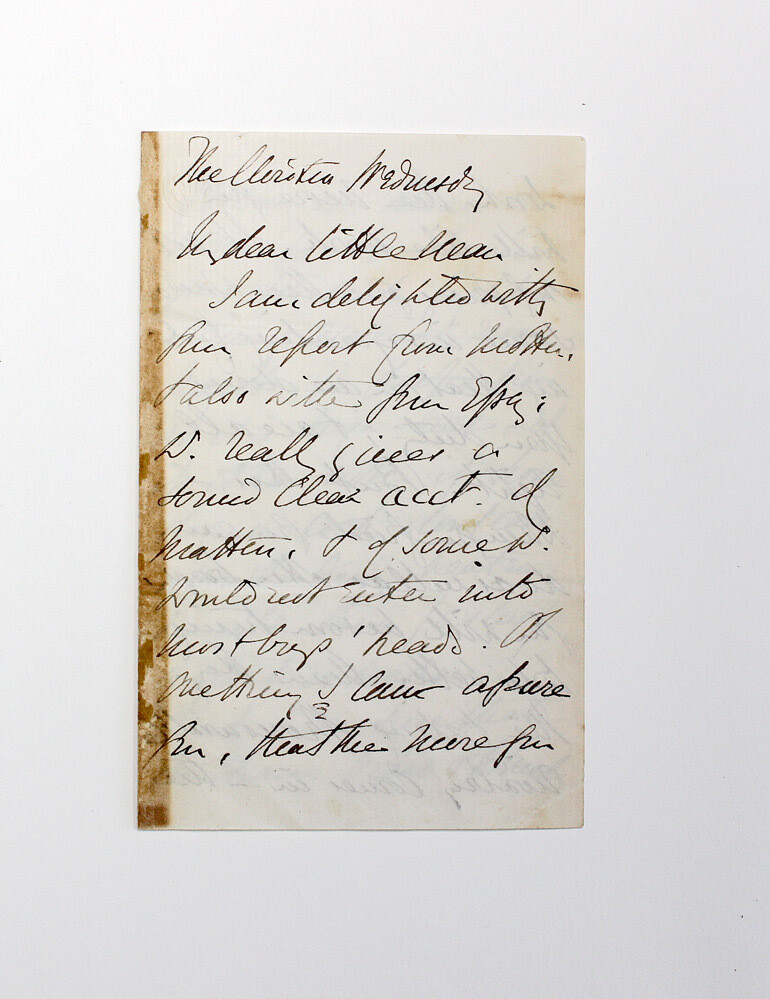 The Cloisters Wednesday
My dear little man
I am delighted with
your report from
& also with your Essay;
It really gives a
sound clear acct. of
matters, & of some wh.
would not enter into
most boys' heads. Of
one thing I can assure
you, that the more you